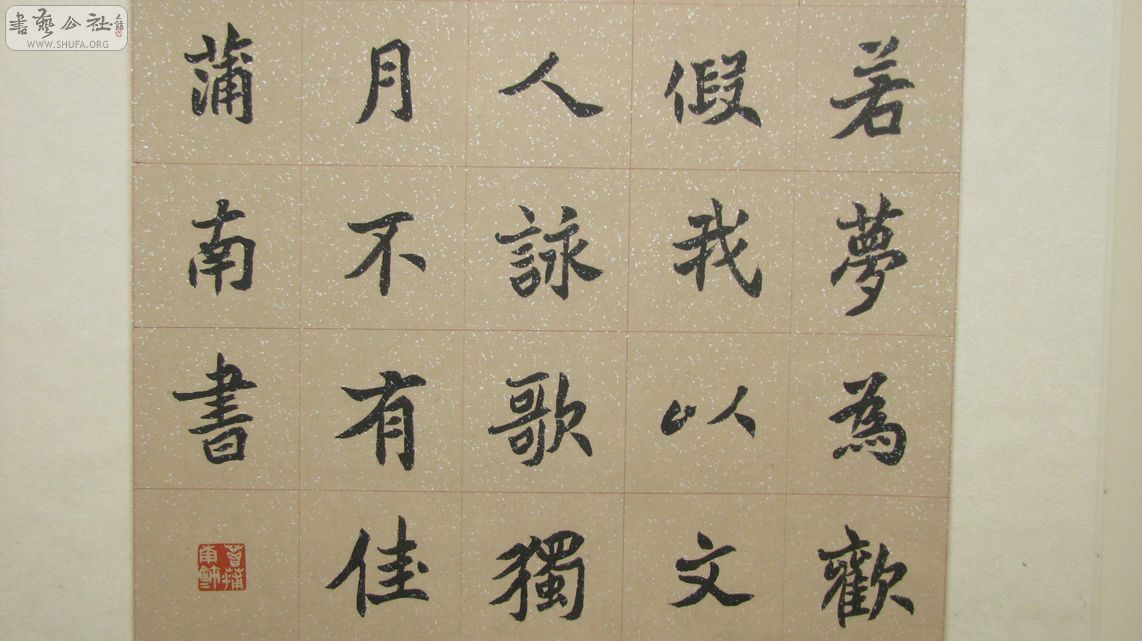 書藝公社
WWW.SHUFA.ORG
若夢為歡
假我以文
人詠歌獨
月不有佳
蒲南書